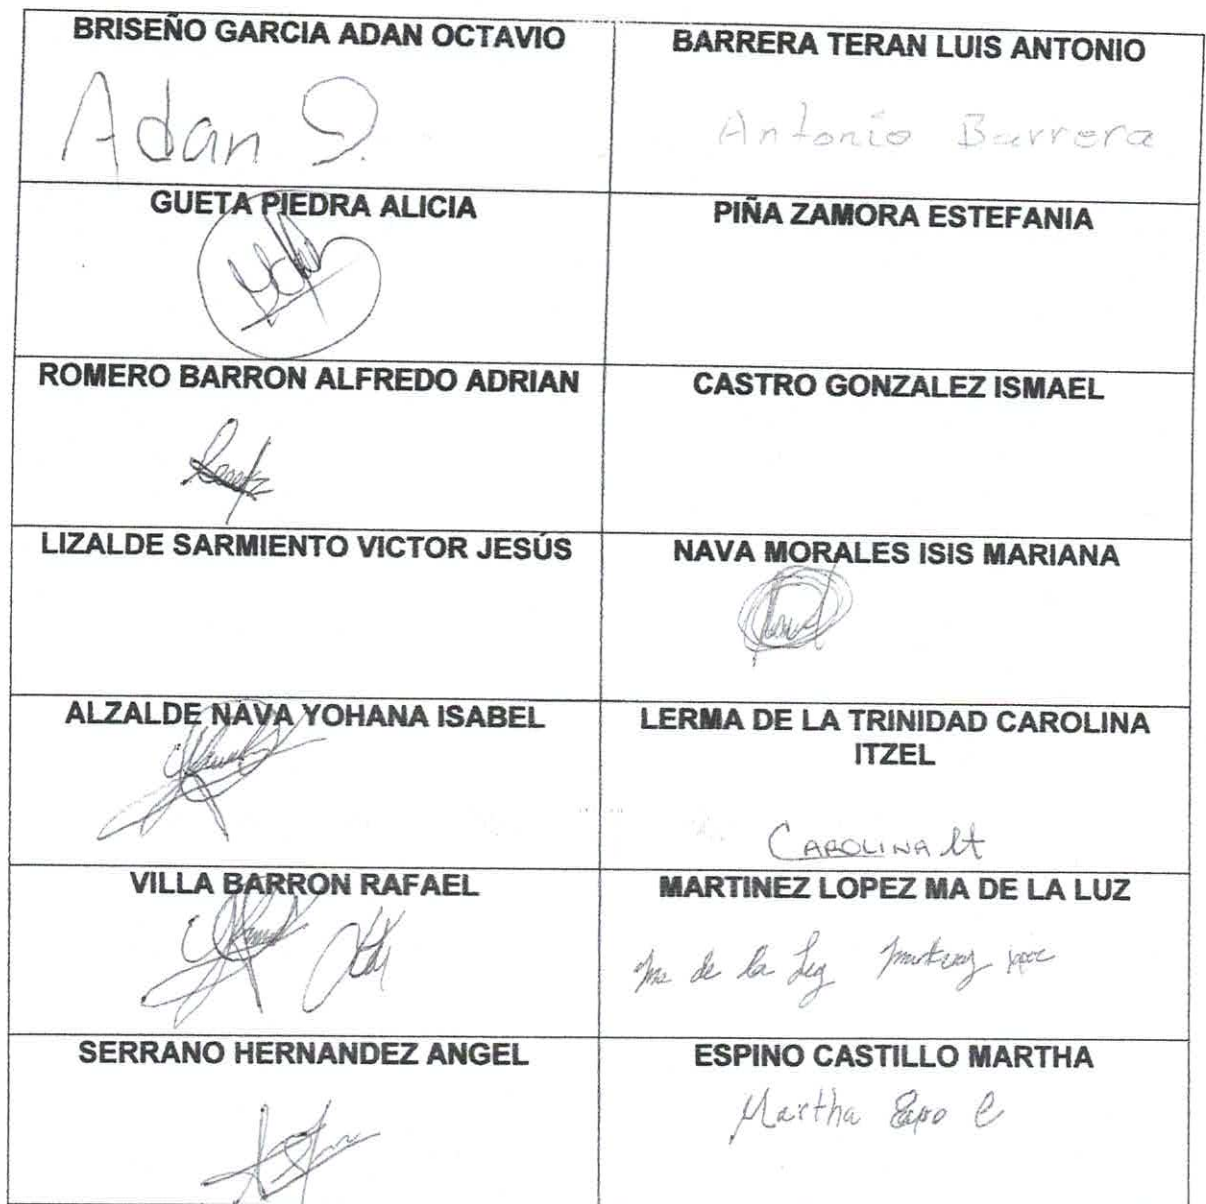 BRISEÑO GARCIA ADAN OCTAVIO
BARRERA TERAN LUIS ANTONIO
Adan
Antonio Barrera
GUETA PIEDRA ALICIA
PIÑA ZAMORA ESTEFANIA
ROMERO BARRON ALFREDO ADRIAN
CASTRO GONZALEZ ISMAEL
LIZALDE SARMIENTO VICTOR JESÚS
NAVA MORALES ISIS MARIANA
ALZALDE NAVA YOHANA ISABEL
LERMA DE LA TRINIDAD CAROLINA
ITZEL
CAROLINA lt
VILLA BARRON RAFAEL
MARTINEZ LOPEZ MA DE LA LUZ
Ma de la Luz
SERRANO HERNANDEZ ANGEL
ESPINO CASTILLO MARTHA
Martha